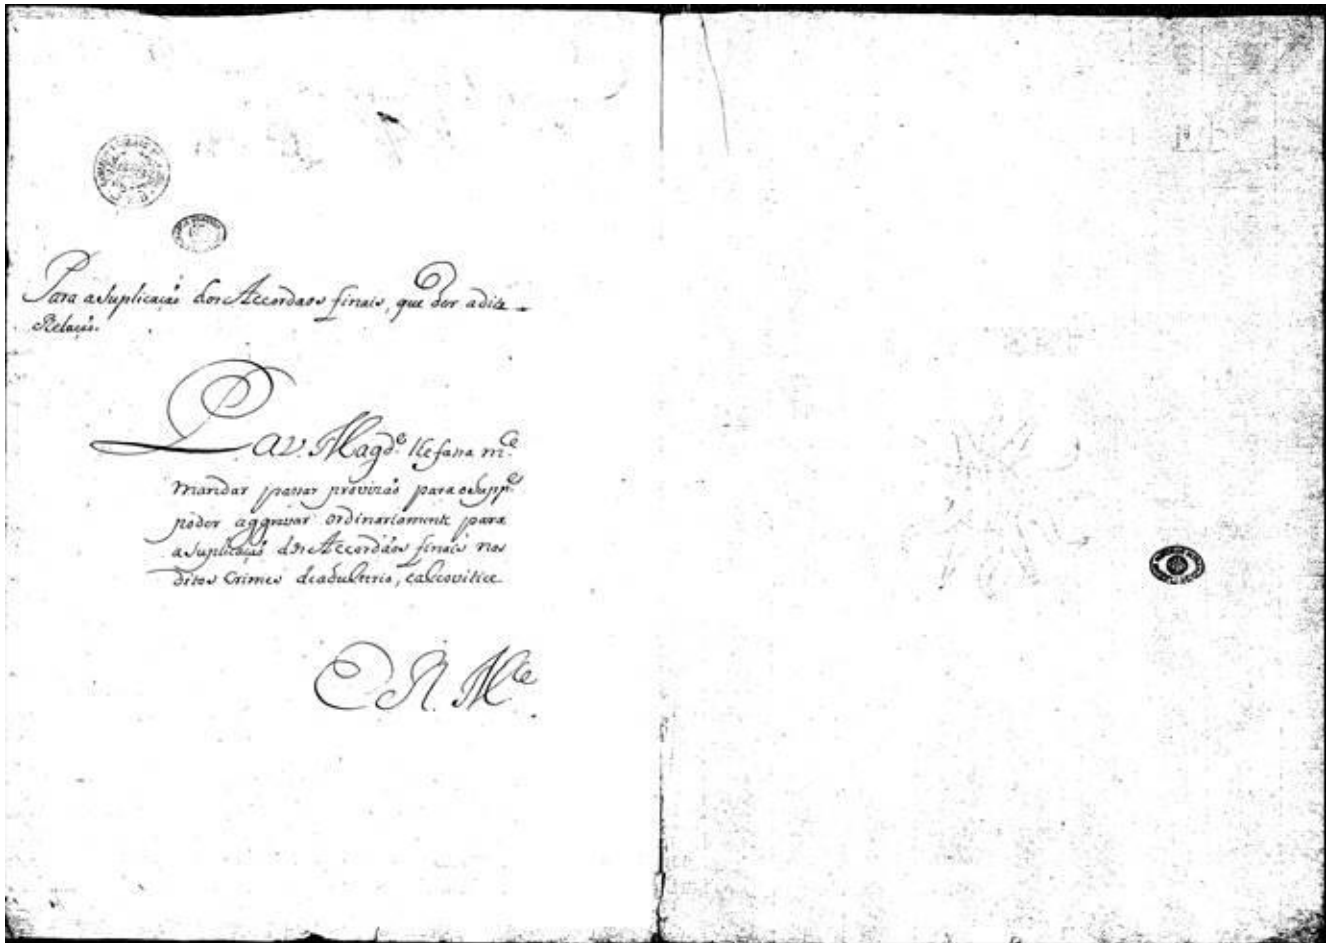 Para a Suplicaçaõ dos Accordaos finais, que der a dita
Relaçaõ.
P. a V. Magd.e lhe fassa m.ce
mandar passar provizaõ para o Supp.e
poder aggravar ordinariamente para
a Suplicaçaõ dos Accordaõs finais nos
ditos Crimes de adulterio, e alcovitice
E R. M.ce